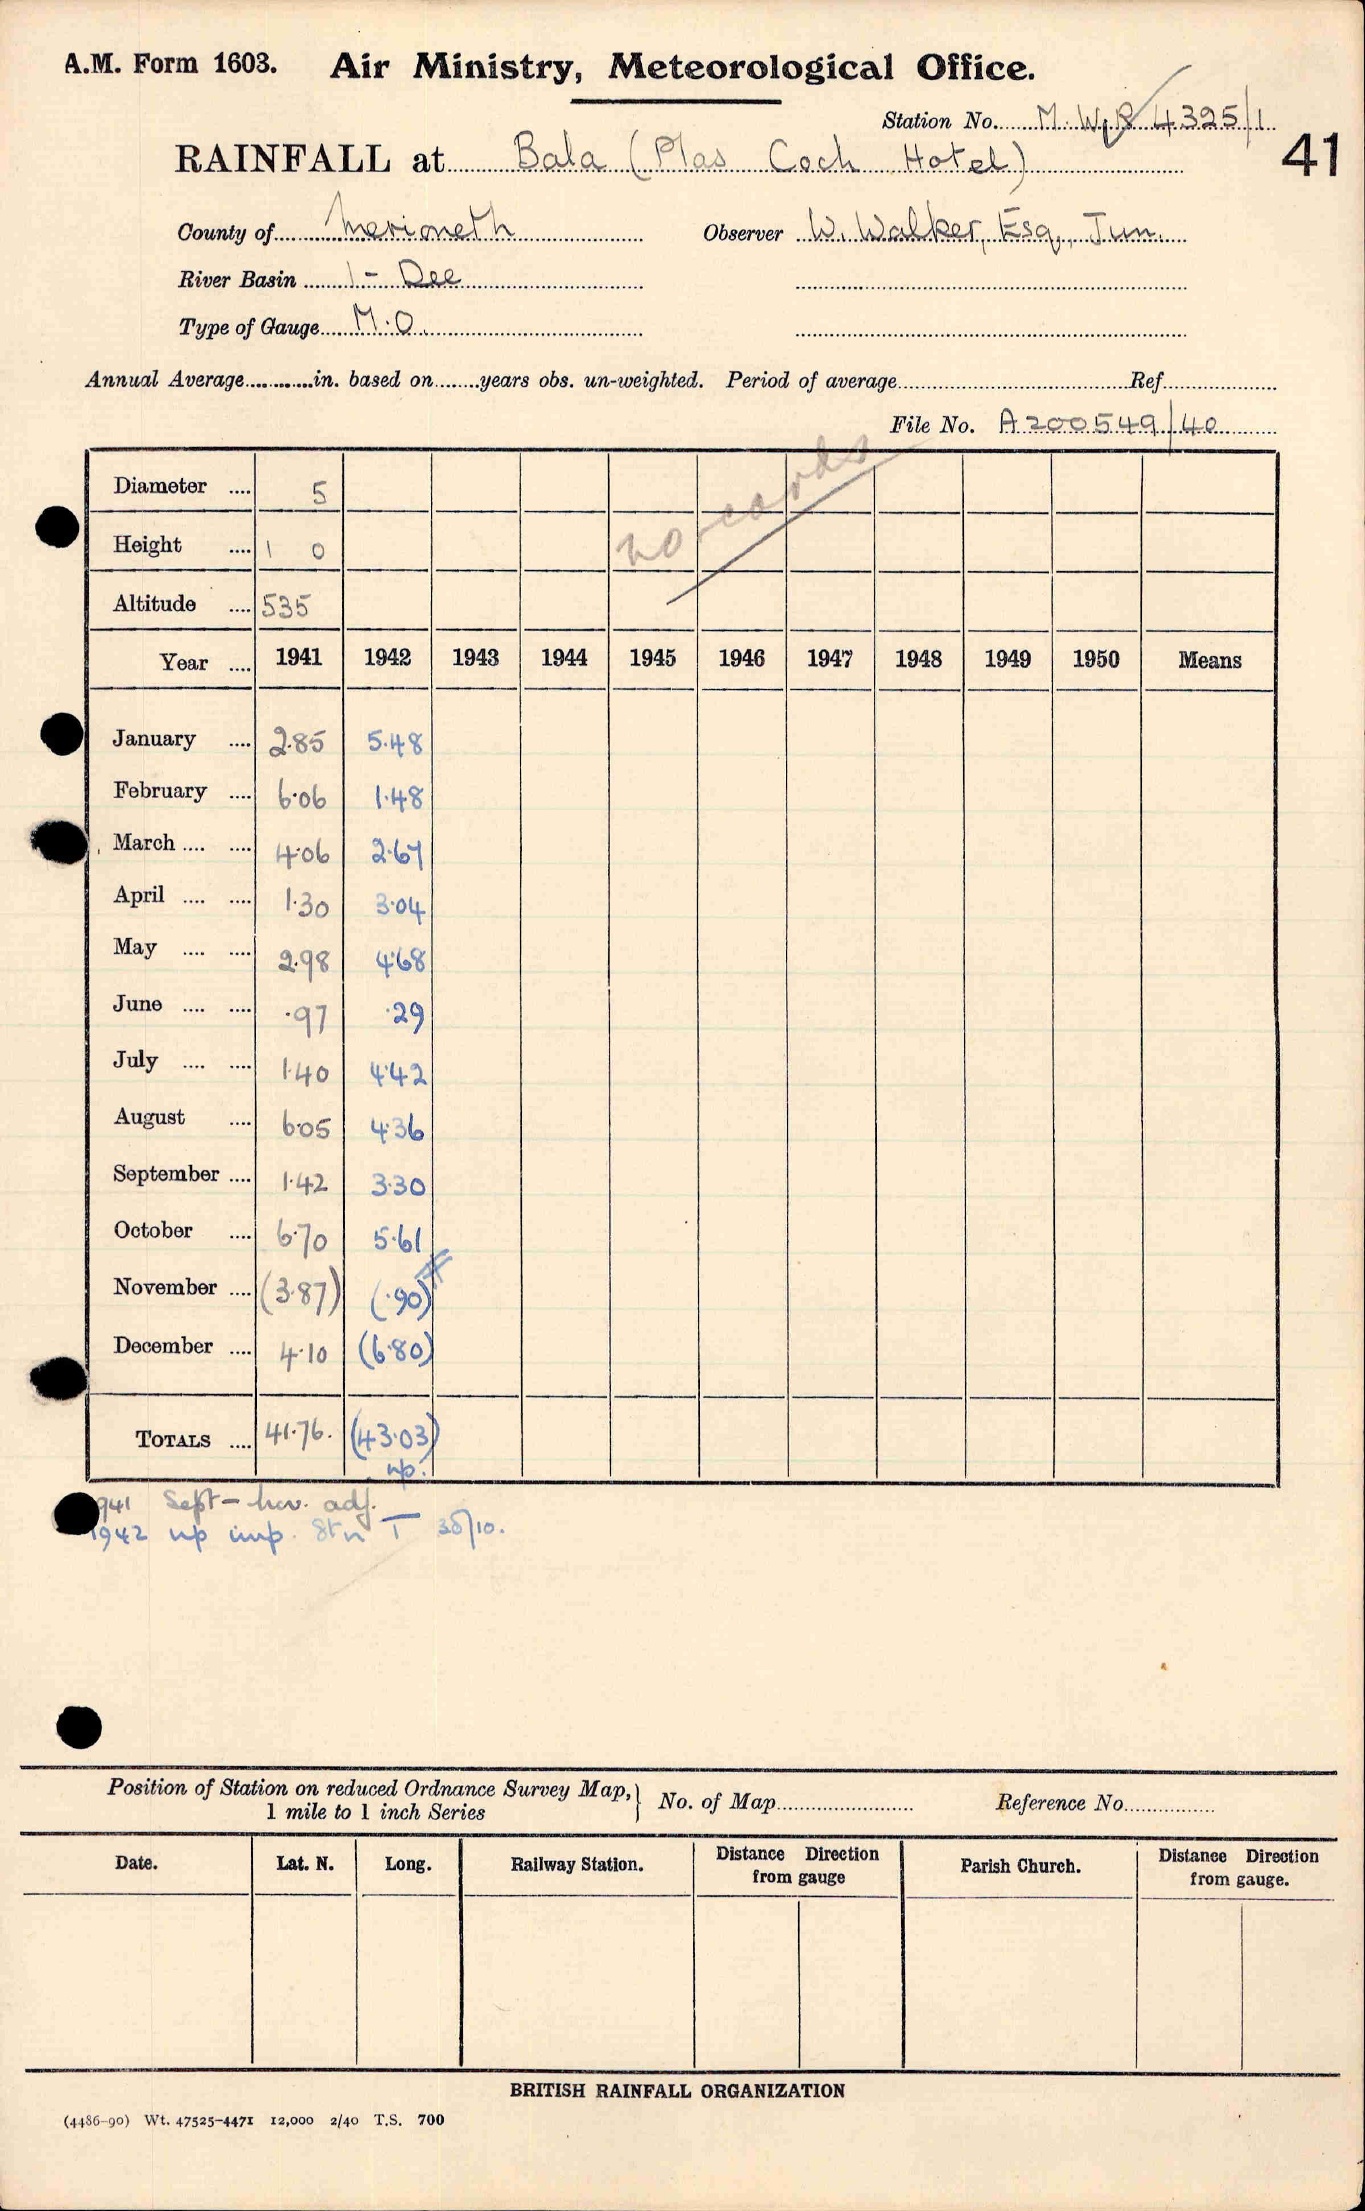 A.M. Form 1603. Air Ministry, Meteorological Office.
Station No. M.W.R 4325/1
41
RAINFALL at Bala (Plas Coch Hotel)
County of Merioneth Observer W. Walker, Esq., Jun.
River Basin 1 - Dee
Type of Gauge M.O.
Annual Average............in. based on........years obs. un-weighted. Period of average..............................Ref...............
File No. A200549/40
no cards
Diameter .... 5
Height .... 1 0
Altitude .... 535
Year .... 1941 1942 1943 1944 1945 1946 1947 1948 1949 1950 Means
January .... 2.85 5.48
February .... 6.06 1.48
March .... .... 4.06 2.67
April .... .... 1.30 3.04
May .... .... 2.98 4.68
June .... .... .97 .29
July .... .... 1.40 4.42
August .... 6.05 4.36
September .... 1.42 3.30
October .... 6.70 5.61
November .... (3.87) (.90)
December .... 4.10 (6.80)
TOTALS .... 41.76. (43.03)
up.
1941 Sept - Nov. adj.
1942 up imp. Stn T 30/10.
Position of Station on reduced Ordnance Survey Map, 1 mile to 1 inch Series } No. of Map........................ Reference No...............
Date. Lat. N. Long. Railway Station. Distance Direction from gauge Parish Church. Distance Direction from gauge.
BRITISH RAINFALL ORGANIZATION
(4486-90) Wt. 47525-4471 12,000 2/40 T.S. 700